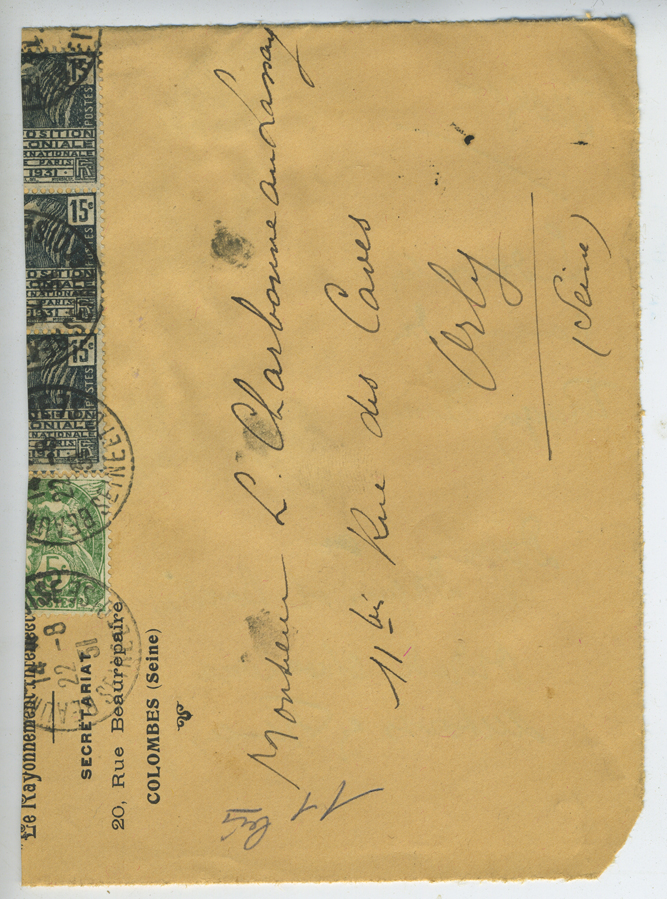 15c
POSTES
EXPOSITION
COLONIALE
INTERNATIONALE
PARIS
1931
15c
EXPOSITION
COLONIALE
INTERNATIONALE
PARIS
1931
15c
POSTES
EXPOSITION
COLONIALE
INTERNATIONALE
PARIS
1931
5c
14 - 8
22
31
Le Rayonnement
SECRÉTARIAT
20, Rue Beaurepaire
COLOMBES (Seine)
Monsieur L. Charbonneau Lassay
11 bis Rue des Caves
Orly
(Seine)
11
bis